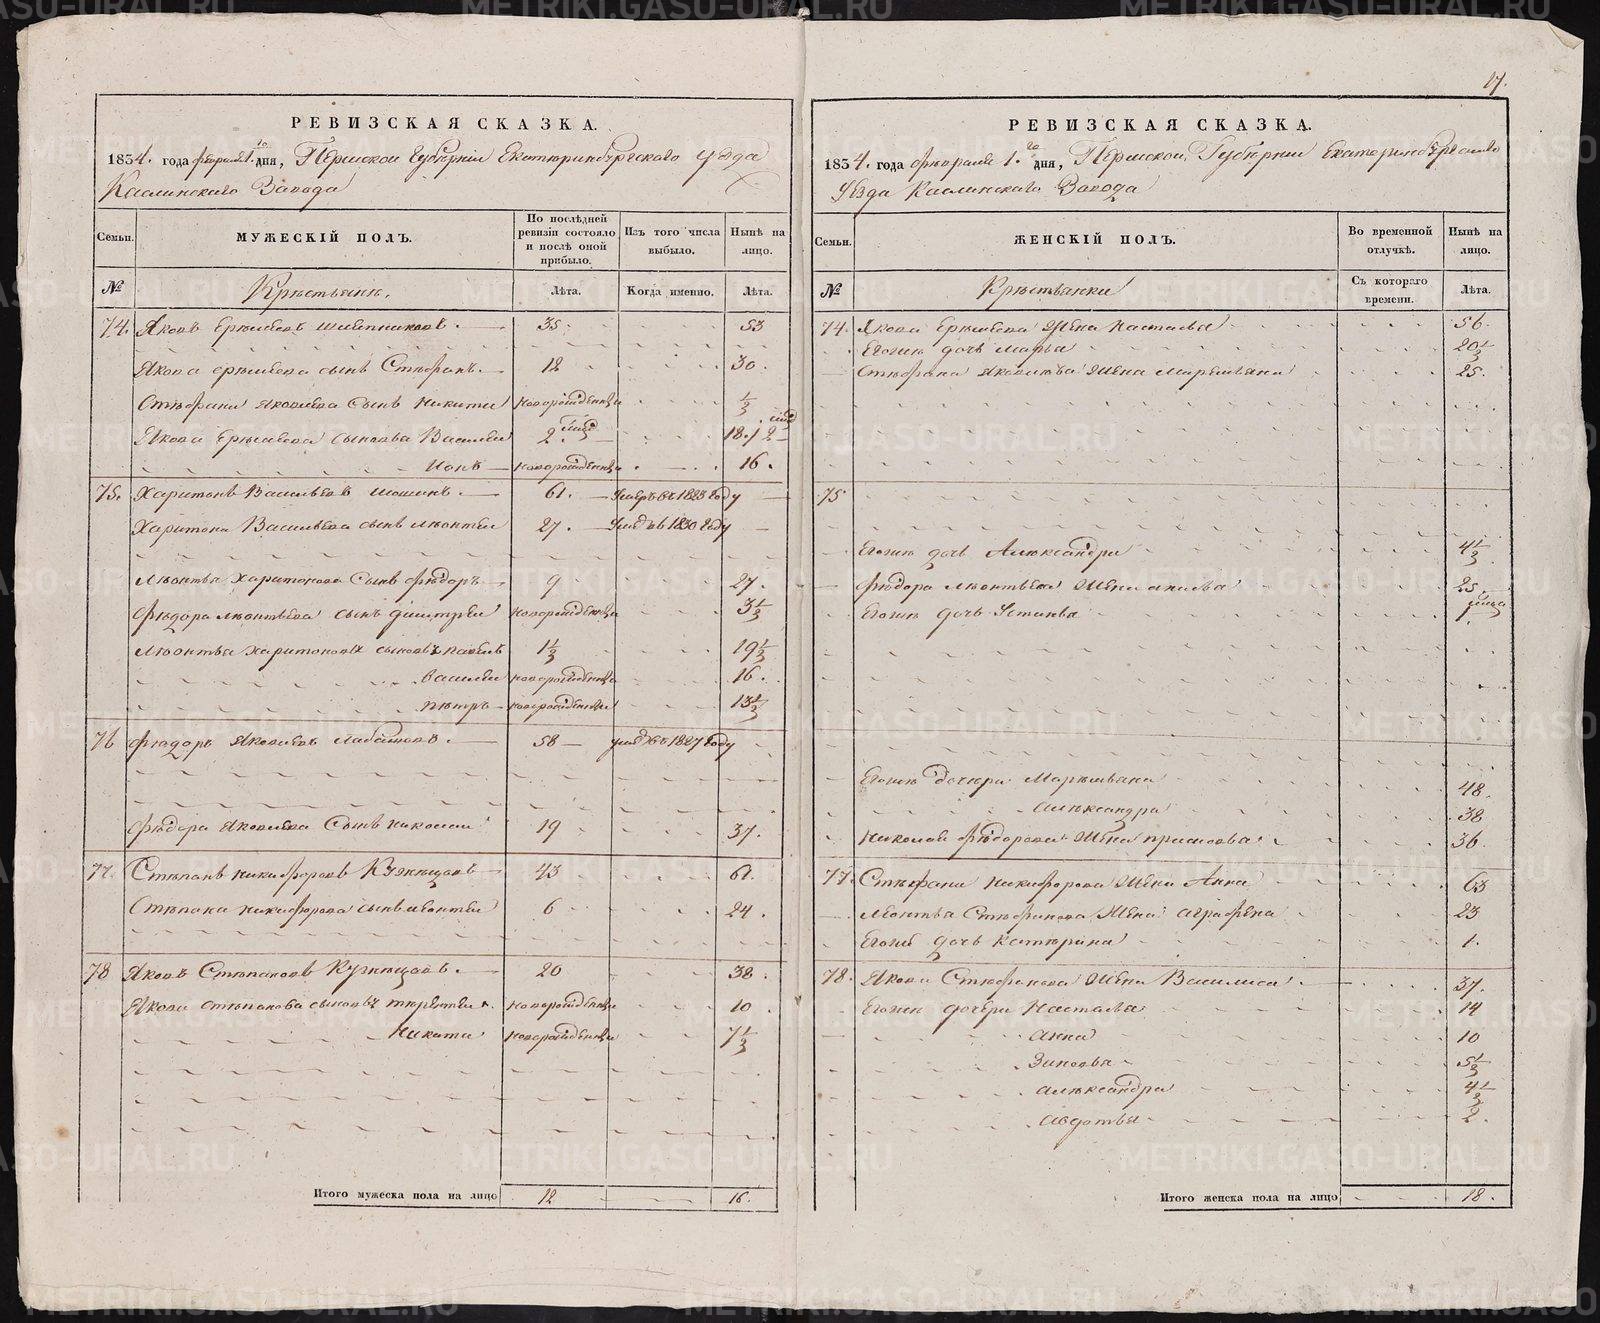 17.
РЕВИЗСКАЯ СКАЗКА.
1834. года февраля 1.го дня, Пермской Губернии Екатеринбургского уезда
Каслинского Завода
Семьи. МУЖЕСКІЙ ПОЛЪ. По послѣдней ревизіи состояло и послѣ оной прибыло. Изъ того числа выбыло. Нынѣ на лицо.
№ Крестьяне. Лѣта. Когда именно. Лѣта.
74. Яковъ Ермолаевъ 35. 53
Якова сынъ Стефанъ. 12 30.
Стефана Яковлева сынъ Никита новорожденны 1/2
Якова сыновья Василей 2 18. 1/2
Иона новорожденны 16.
75. Харитонъ Васильевъ 61. умеръ въ 1823 году
Харитона Васильева сынъ Леонтей 27. въ 1830 году
Леонтья Харитонова сынъ Федоръ 9 27.
Федора Леонтьева сынъ Дмитрей новорожденны 3 1/2
Леонтья Харитонова сыновья Павелъ 1 1/2 19 1/2
Василей новорожденны 16.
Петръ новорожденны 13 1/2
76 Федоръ Яковлевъ 58 въ 1827 году
Федора Яковлева сынъ Николай 19 37.
77. Степанъ Никифоровъ Кузнецовъ 43 61.
Степана Никифорова сынъ Леонтей 6 24.
78 Яковъ Степановъ Кузнецовъ. 20 38.
Якова Степанова сыновья новорожденны 10
Никита новорожденны 7 1/2
Итого мужеска пола на лицо 12 16.
РЕВИЗСКАЯ СКАЗКА.
1834. года февраля 1.го дня, Пермской Губернии Екатеринбургского
Уезда Каслинского Завода
Семьи. ЖЕНСКІЙ ПОЛЪ. Во временной отлучкѣ. Нынѣ на лицо.
№ Крестьянки Съ котораго времени. Лѣта.
74. Якова жена Настасья 56.
Егоже дочь Марья 20 1/2
Стефана Яковлева жена Маремьяна 25.
75
Егоже дочь Александра 4 1/2
Федора Леонтьева жена 25
Егоже дочь Устинья
Егоже дочери Маремьяна 48.
Александра 38
Николая Федорова жена 36.
77. Стефана Никифорова жена Анна 63
Леонтья Стефанова жена Аграфена 23
Егоже дочь Катерина 1.
78. Якова Стефанова жена Василиса 37.
Егоже дочери Настасья 14
Анна 10
Зиновья 5 1/2
Александра 4 1/2
Авдотья 2.
Итого женска пола на лицо 18.
METRIKI.GASO-URAL.RU